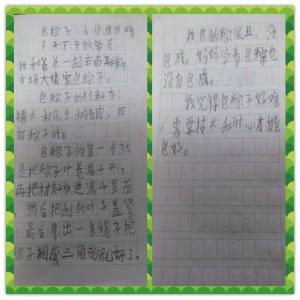 包粽子 6月9日晴
今天下午放学后,
我和爸爸一起去
市场大嫂家包粽子。
包粽子的材料有:
糯米和花生和猪肉,还
有粽子叶。
包粽子的第一步就
是把粽子叶卷漏斗形,
再把材料放进漏斗里面
然后把剩的叶子盖紧
最后拿出一条绳子把
粽子捆成三角形就好了。
我包的粽很丑,没
包成。妈妈学着包粽也
没有包成。
我觉得包粽子好难,
需要技术和耐心才能
包好。